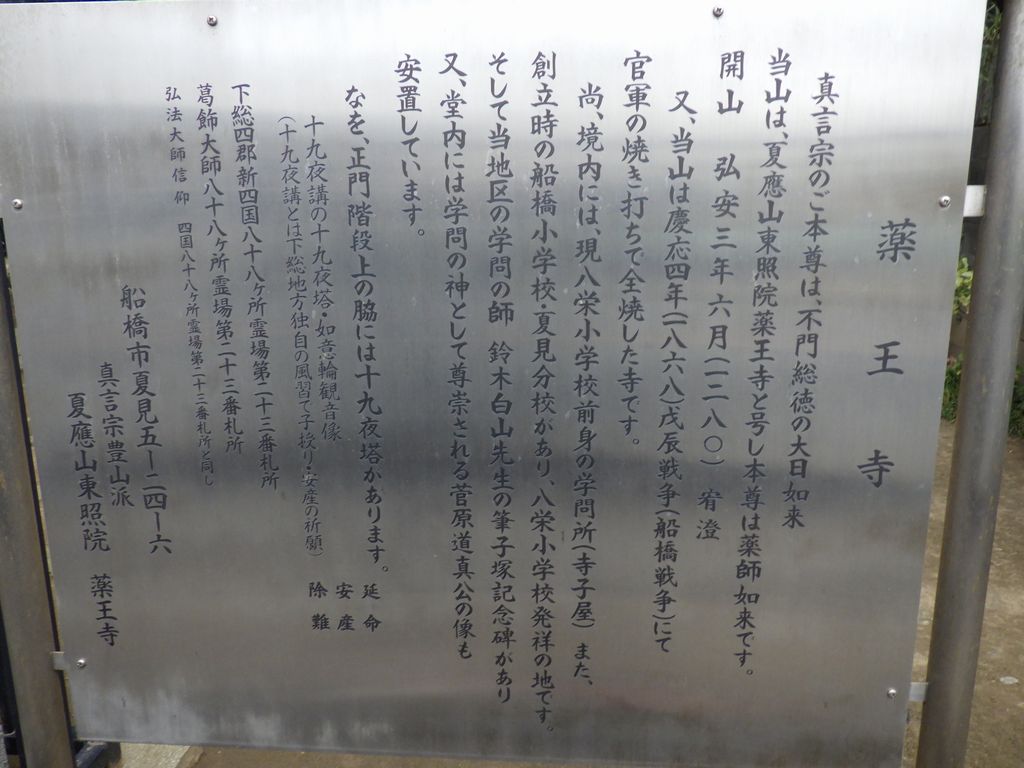 薬王寺
真言宗のご本尊は、不門総徳の大日如来
当山は、夏應山東照院薬王寺と号し本尊は薬師如来です。
開山　弘安三年六月(一二八〇)　宥澄
又、当山は慶応四年(一八六八)戊辰戦争(船橋戦争)にて
官軍の焼き打ちで全焼した寺です。
尚、境内には、現八栄小学校前身の学問所(寺子屋)また、
創立時の船橋小学校・夏見分校があり、八栄小学校発祥の地です。
そして当地区の学問の師　鈴木白山先生の筆子塚記念碑があり
又、堂内には学問の神として尊崇される菅原道真公の像も
安置しています。
なを、正門階段上の脇には十九夜塔があります。
十九夜講の十九夜塔・如意輪観音像
(十九夜講とは下総地方独自の風習で子授り・安産の祈願)
延命
安産
除難
下総四郡新四国八十八ヶ所霊場第二十三番札所
葛飾大師八十八ヶ所霊場第二十三番札所
弘法大師信仰　四国八十八ヶ所霊場第二十三番札所と同し
船橋市夏見五ー二四ー六
真言宗豊山派
夏應山東照院　薬王寺